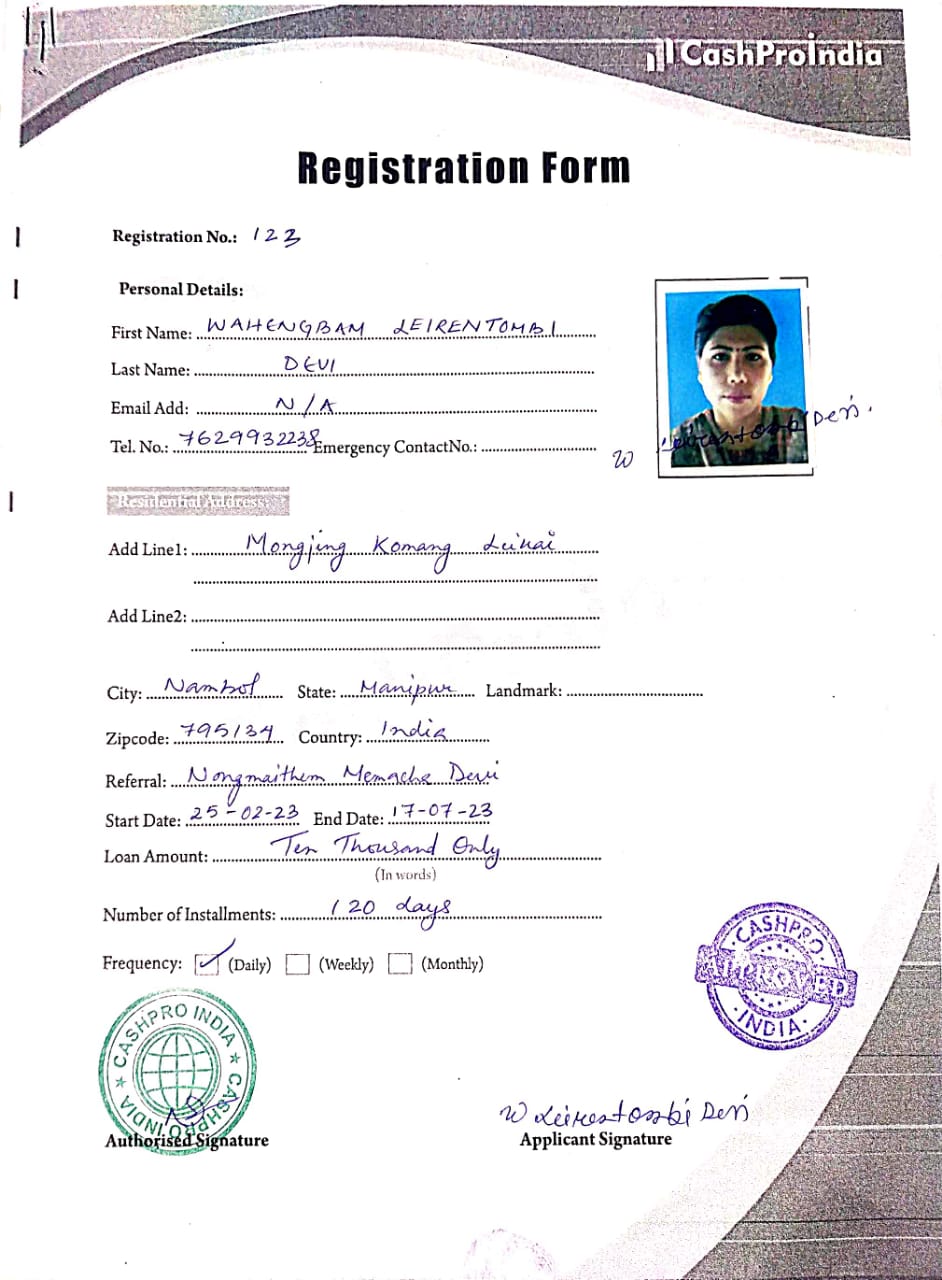 CashProIndia
Registration Form
Registration No.: 123
Personal Details:
First Name: WAHENGBAM LEIRENTOMBI
Last Name: DEVI
Email Add: N/A
Tel. No.: 7629932238 Emergency ContactNo.:
W Leirentombi Devi.
Residential Address:
Add Line1: Mongjing Komang Leikai
Add Line2:
City: Nambol State: Manipur Landmark:
Zipcode: 795134 Country: India
Referral: Nongmaithem Memacha Devi
Start Date: 25-02-23 End Date: 17-07-23
Loan Amount: Ten Thousand Only
(In words)
Number of Installments: 120 days
Frequency: (Daily) (Weekly) (Monthly)
CASHPRO
APPROVED
INDIA
CASHPRO INDIA
CASHPRO INDIA
W Leirentombi Devi
Authorised Signature Applicant Signature